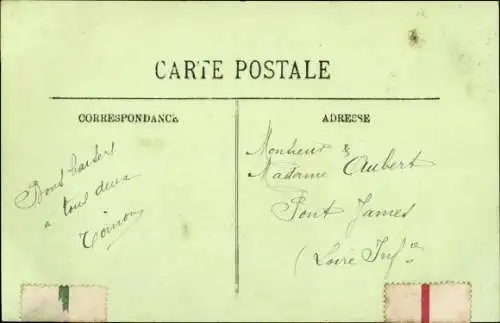 CARTE POSTALE
CORRESPONDANCE
ADRESSE
Bons baisers
a tous deux
Monsieur &
Madame Aubert
Pont James
(Loire Infcie